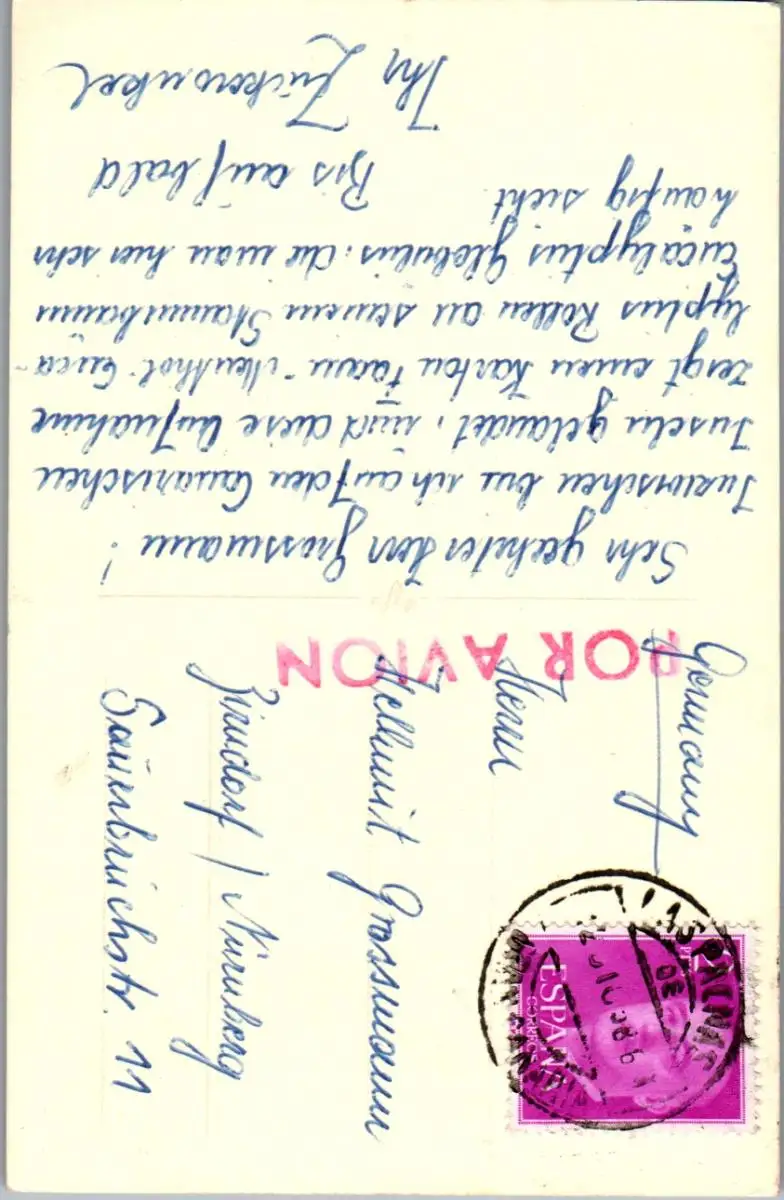 Sehr geehrter Herr Grossmann!
Inzwischen bin ich auf den Canarischen
Inseln gelandet, und diese Aufnahme
zeigt einen Karton "Menthol-Euca-
lyptus Rollen an seinem Stammbaum
Eucalyptus Globulus, die man hier sehr
häufig sieht.
Bis auf bald
Ihr Zuckeronkel
POR AVION
Germany
Herrn
Hellmut Grossmann
Zirndorf / Nürnberg
Sauerbruchstr. 11
ESPAÑA
CORREOS
LAS PALMAS